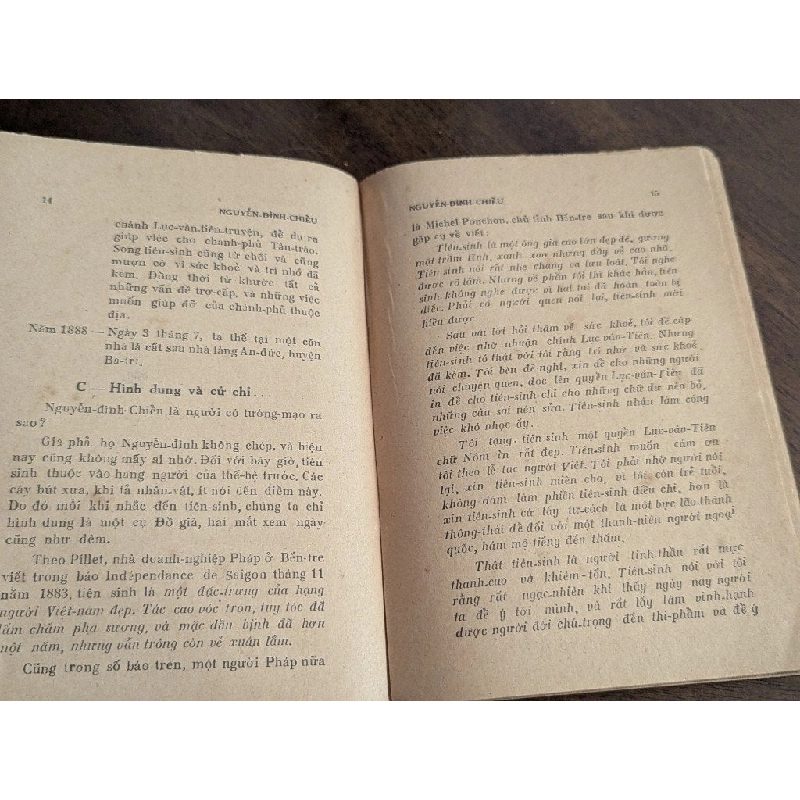 14
NGUYỄN-ĐÌNH-CHIỂU
chánh Lục-vân-tiên-truyện, để dụ ra
giúp việc cho chánh-phủ Tân-trào.
Song tiên-sinh cũng từ chối và cũng
mượn cớ vì sức khoẻ và trí nhớ đã
kém. Đồng thời từ khước tất cả
những vấn đề trợ-cấp, và những việc
muốn giúp đỡ của chánh-phủ thuộc
địa.
Năm 1888 — Ngày 3 tháng 7, ta thế tại một căn
nhà lá cất sau nhà làng An-đức, huyện
Ba-tri.
C — Hình dung và cử chỉ...
Nguyễn-đình-Chiểu là người có tướng-mạo ra
sao?
Gia phả họ Nguyễn-đình không chép, và hiện
nay cũng không mấy ai nhớ. Đối với bây giờ, tiên
sinh thuộc vào hạng người của thế-hệ trước. Các
cây bút xưa, khi tả nhân-vật, ít nói đến điểm này.
Do đó mỗi khi nhắc đến tiên sinh, chúng ta chỉ
hình dung là một cụ Đồ già, hai mắt xem ngày
cũng như đêm.
Theo Pillet, nhà doanh-nghiệp Pháp ở Bến-tre
viết trong báo Indépendance de Saigon tháng 11
năm 1883, tiên sinh là một đặc-trưng của hạng
người Việt-nam đẹp. Tác cao vóc tròn, tuy tóc đã
lấm chấm pha sương, và mặc dầu bịnh đã hơn
một năm, nhưng vẫn trông còn vẻ xuân lắm.
Cũng trong số báo trên, một người Pháp nữa
NGUYỄN-ĐÌNH-CHIỂU
15
là Michel Ponchon, chủ tỉnh Bến-tre sau khi được
gặp cụ về viết:
Tiên-sinh là một ông già cao lớn đẹp đẽ, gương
mặt trầm tĩnh, xanh xao nhưng đầy vẻ cao nhã.
Tiên sinh nói rất nhẹ chàng và lưu loát. Tôi nghe
được rõ lắm. Nhưng về phần tôi thì khác hẳn, tiên
sinh không nghe được vì hai tai đã hoàn toàn bị
điếc. Phải có người quen nói lại, tiên-sinh mới
hiểu được.
Sau vài lời hỏi thăm về sức khoẻ, tôi đề cập
đến việc nhờ nhuận chính Lục-vân-Tiên. Nhưng
tiên-sinh tỏ thật với tôi rằng trí nhớ và sức khoẻ
đã kém. Tôi bèn đề nghị, xin để cho những người
nói chuyện quen, đọc lên quyển Lục-vân-Tiên đã
in để cho tiên-sinh chỉ cho những chữ dư nên bỏ,
những câu sai nên sửa. Tiên-sinh nhận làm công
việc khó nhọc ấy.
Tôi tặng tiên-sinh một quyển Lục-vân-Tiên
chữ Nôm in rất đẹp. Tiên-sinh muốn cám ơn
tôi theo lễ tục người Việt. Tôi phải nhờ người nói
lại, xin tiên-sinh miễn cho, vì tôi còn trẻ tuổi,
không dám làm phiền tiên-sinh điều chi, hơn là
xin tiên-sinh cứ lấy tư-cách là một bực lão thành
thông-thái để đối với một thanh-niên người ngoại
quốc, hâm mộ tiếng đến thăm.
Thật tiên-sinh là người tinh-thần rất mực
thanh-cao và khiêm-tốn. Tiên-sinh nói với tôi
rằng rất ngạc-nhiên khi thấy ngày nay người
ta để ý tới mình, và rất lấy làm vinh-hạnh
được người đời chú-trọng đến thi-phẩm và để ý